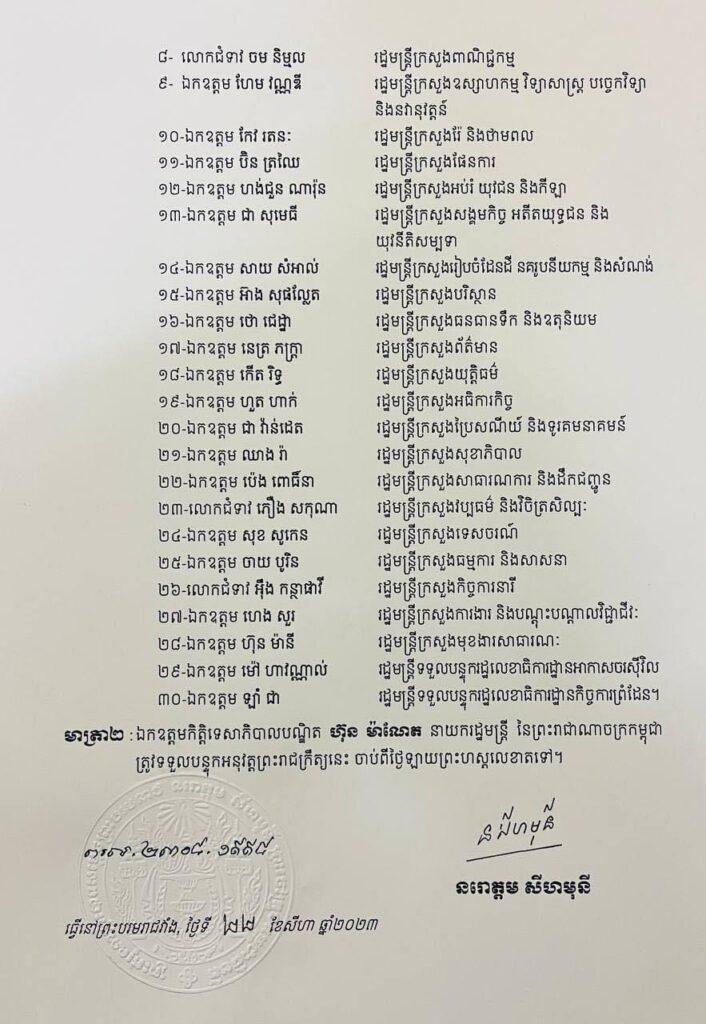 ៨- លោកជំទាវ ចម និម្មល រដ្ឋមន្ត្រីក្រសួងពាណិជ្ជកម្ម
៩- ឯកឧត្តម ហែម វណ្ណឌី រដ្ឋមន្ត្រីក្រសួងឧស្សាហកម្ម វិទ្យាសាស្ត្រ បច្ចេកវិទ្យា
និងនវានុវត្តន៍
១០-ឯកឧត្តម កែវ រតនៈ រដ្ឋមន្ត្រីក្រសួងរ៉ែ និងថាមពល
១១-ឯកឧត្តម ប៊ិន ត្រឈៃ រដ្ឋមន្ត្រីក្រសួងផែនការ
១២-ឯកឧត្តម ហង់ជួន ណារ៉ុន រដ្ឋមន្ត្រីក្រសួងអប់រំ យុវជន និងកីឡា
១៣-ឯកឧត្តម ជា សុមេធី រដ្ឋមន្ត្រីក្រសួងសង្គមកិច្ច អតីតយុទ្ធជន និង
យុវនីតិសម្បទា
១៤-ឯកឧត្តម សាយ សំអាល់ រដ្ឋមន្ត្រីក្រសួងរៀបចំដែនដី នគរូបនីយកម្ម និងសំណង់
១៥-ឯកឧត្តម អ៊ាង សុផល្លែត រដ្ឋមន្ត្រីក្រសួងបរិស្ថាន
១៦-ឯកឧត្តម ថោ ជេដ្ឋា រដ្ឋមន្ត្រីក្រសួងធនធានទឹក និងឧតុនិយម
១៧-ឯកឧត្តម នេត្រ ភក្ត្រា រដ្ឋមន្ត្រីក្រសួងព័ត៌មាន
១៨-ឯកឧត្តម កើត រិទ្ធ រដ្ឋមន្ត្រីក្រសួងយុត្តិធម៌
១៩-ឯកឧត្តម ហួត ហាក់ រដ្ឋមន្ត្រីក្រសួងអធិការកិច្ច
២០-ឯកឧត្តម ជា វ៉ាន់ដេត រដ្ឋមន្ត្រីក្រសួងប្រៃសណីយ៍ និងទូរគមនាគមន៍
២១-ឯកឧត្តម ឈាង រ៉ា រដ្ឋមន្ត្រីក្រសួងសុខាភិបាល
២២-ឯកឧត្តម ប៉េង ពោធិ៍នា រដ្ឋមន្ត្រីក្រសួងសាធារណការ និងដឹកជញ្ជូន
២៣-លោកជំទាវ ភឿង សកុណា រដ្ឋមន្ត្រីក្រសួងវប្បធម៌ និងវិចិត្រសិល្បៈ
២៤-ឯកឧត្តម សុខ សូកេន រដ្ឋមន្ត្រីក្រសួងទេសចរណ៍
២៥-ឯកឧត្តម ចាយ បូរិន រដ្ឋមន្ត្រីក្រសួងធម្មការ និងសាសនា
២៦-លោកជំទាវ អុឹង កន្ថាផាវី រដ្ឋមន្ត្រីក្រសួងកិច្ចការនារី
២៧-ឯកឧត្តម ហេង សួរ រដ្ឋមន្ត្រីក្រសួងការងារ និងបណ្តុះបណ្តាលវិជ្ជាជីវៈ
២៨-ឯកឧត្តម ហ៊ុន ម៉ានី រដ្ឋមន្ត្រីក្រសួងមុខងារសាធារណៈ
២៩-ឯកឧត្តម ម៉ៅ ហាវណ្ណាល់ រដ្ឋមន្ត្រីទទួលបន្ទុករដ្ឋលេខាធិការដ្ឋានអាកាសចរស៊ីវិល
៣០-ឯកឧត្តម ឡាំ ជា រដ្ឋមន្ត្រីទទួលបន្ទុករដ្ឋលេខាធិការដ្ឋានកិច្ចការព្រំដែន។
មាត្រា២ : ឯកឧត្តមកិត្តិទេសាភិបាលបណ្ឌិត ហ៊ុន ម៉ាណែត នាយករដ្ឋមន្ត្រី នៃព្រះរាជាណាចក្រកម្ពុជា
ត្រូវទទួលបន្ទុកអនុវត្តព្រះរាជក្រឹត្យនេះ ចាប់ពីថ្ងៃឡាយព្រះហស្តលេខាតទៅ។
ន សីហមុនី
ព.រ.ល. ២៣០៨. ១៩៩៨
នរោត្តម សីហមុនី
ធ្វើនៅព្រះបរមរាជវាំង, ថ្ងៃទី ២២ ខែសីហា ឆ្នាំ២០២៣